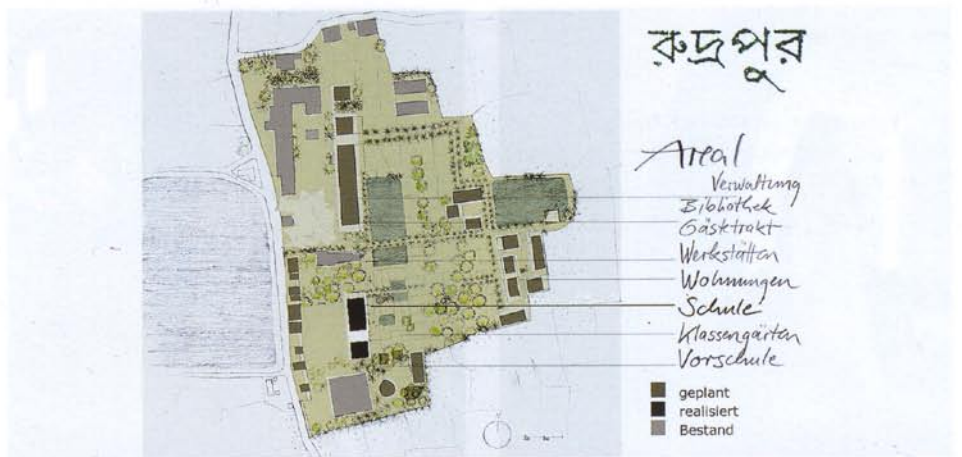 রুদ্রপুর
Areal
Verwaltung
Bibliothek
Gästetrakt
Werkstätten
Wohnungen
Schule
Klassengärten
Vorschule
geplant
realisiert
Bestand